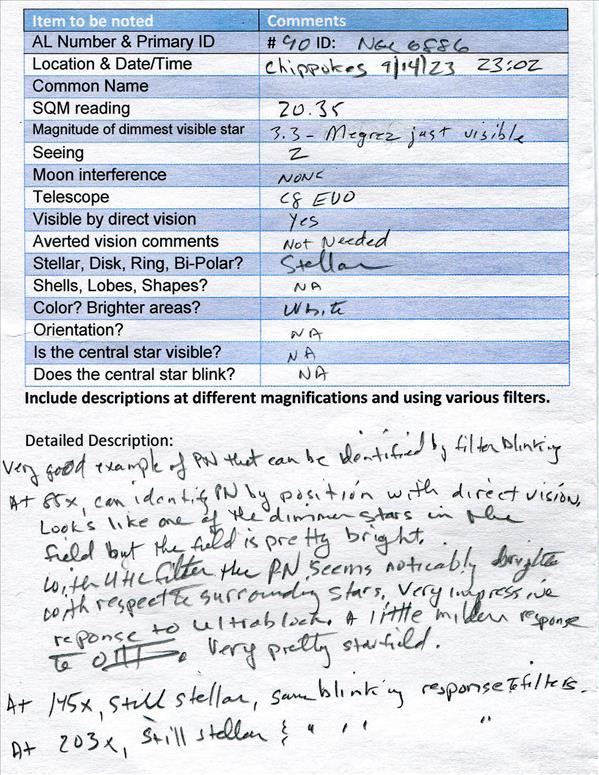 Item to be noted Comments
AL Number & Primary ID # 90 ID: NGC 6886
Location & Date/Time Chippokes 9/14/23 23:02
Common Name
SQM reading 20.35
Magnitude of dimmest visible star 3.3 - Megrez just visible
Seeing 2
Moon interference NONE
Telescope C8 EVO
Visible by direct vision Yes
Averted vision comments Not Needed
Stellar, Disk, Ring, Bi-Polar? Stellar
Shells, Lobes, Shapes? NA
Color? Brighter areas? White
Orientation? NA
Is the central star visible? NA
Does the central star blink? NA
Include descriptions at different magnifications and using various filters.
Detailed Description:
Very good example of PN that can be identified by filter blinking
At 85x, can identify PN by position with direct vision.
Looks like one of the dimmer stars in the
field but the field is pretty bright.
With UHC filter the PN seems noticably brighter
with respect to surrounding stars. Very impressive
reponse to Ultrablock. A little milder response
to OIII. Very pretty starfield.
At 145x, still stellar, same blinking response to filters.
At 203x, still stellar & " " "